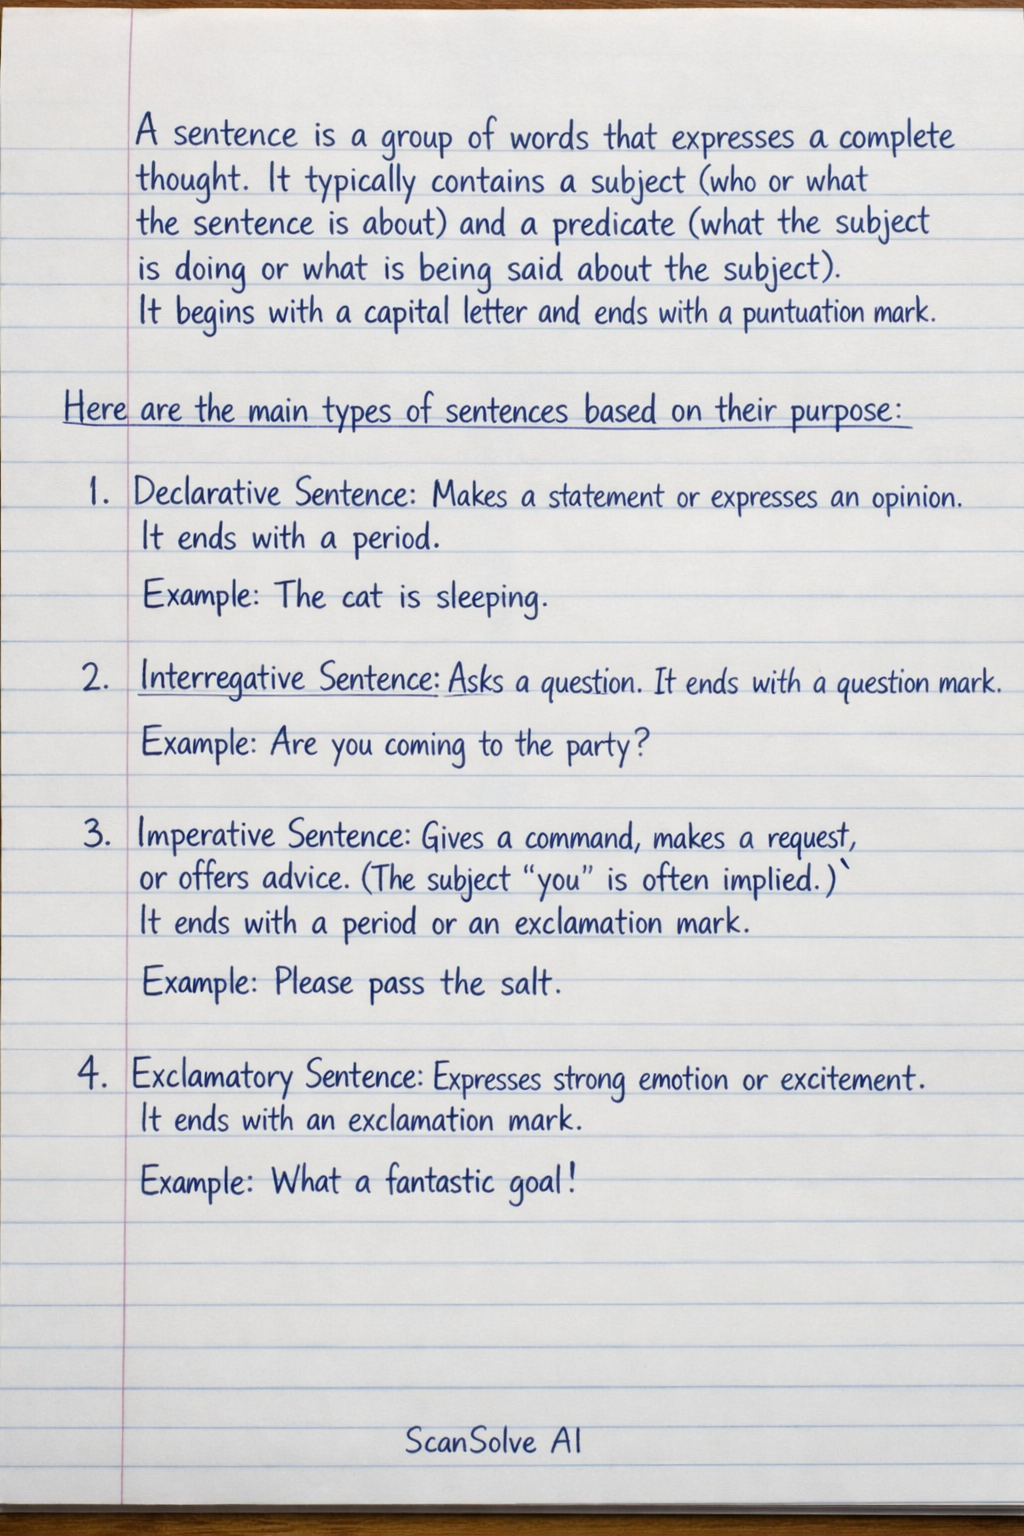 A sentence is a group of words that expresses a complete
thought. It typically contains a subject (who or what
the sentence is about) and a predicate (what the subject
is doing or what is being said about the subject).
It begins with a capital letter and ends with a puntuation mark.
Here are the main types of sentences based on their purpose:
1. Declarative Sentence: Makes a statement or expresses an opinion.
It ends with a period.
Example: The cat is sleeping.
2. Interregative Sentence: Asks a question. It ends with a question mark.
Example: Are you coming to the party?
3. Imperative Sentence: Gives a command, makes a request,
or offers advice. (The subject “you” is often implied.)`
It ends with a period or an exclamation mark.
Example: Please pass the salt.
4. Exclamatory Sentence: Expresses strong emotion or excitement.
It ends with an exclamation mark.
Example: What a fantastic goal!
ScanSolve AI